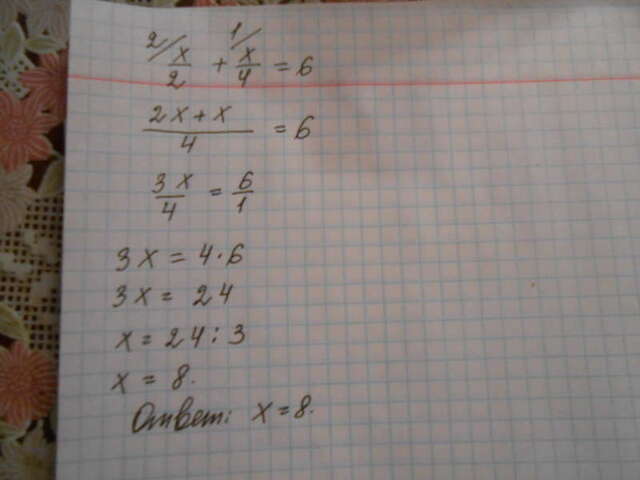 2/ x/2 + 1/ x/4 = 6
2x + x / 4 = 6
3x/4 = 6/1
3x = 4·6
3x = 24
x = 24 : 3
x = 8.
Ответ: x = 8.